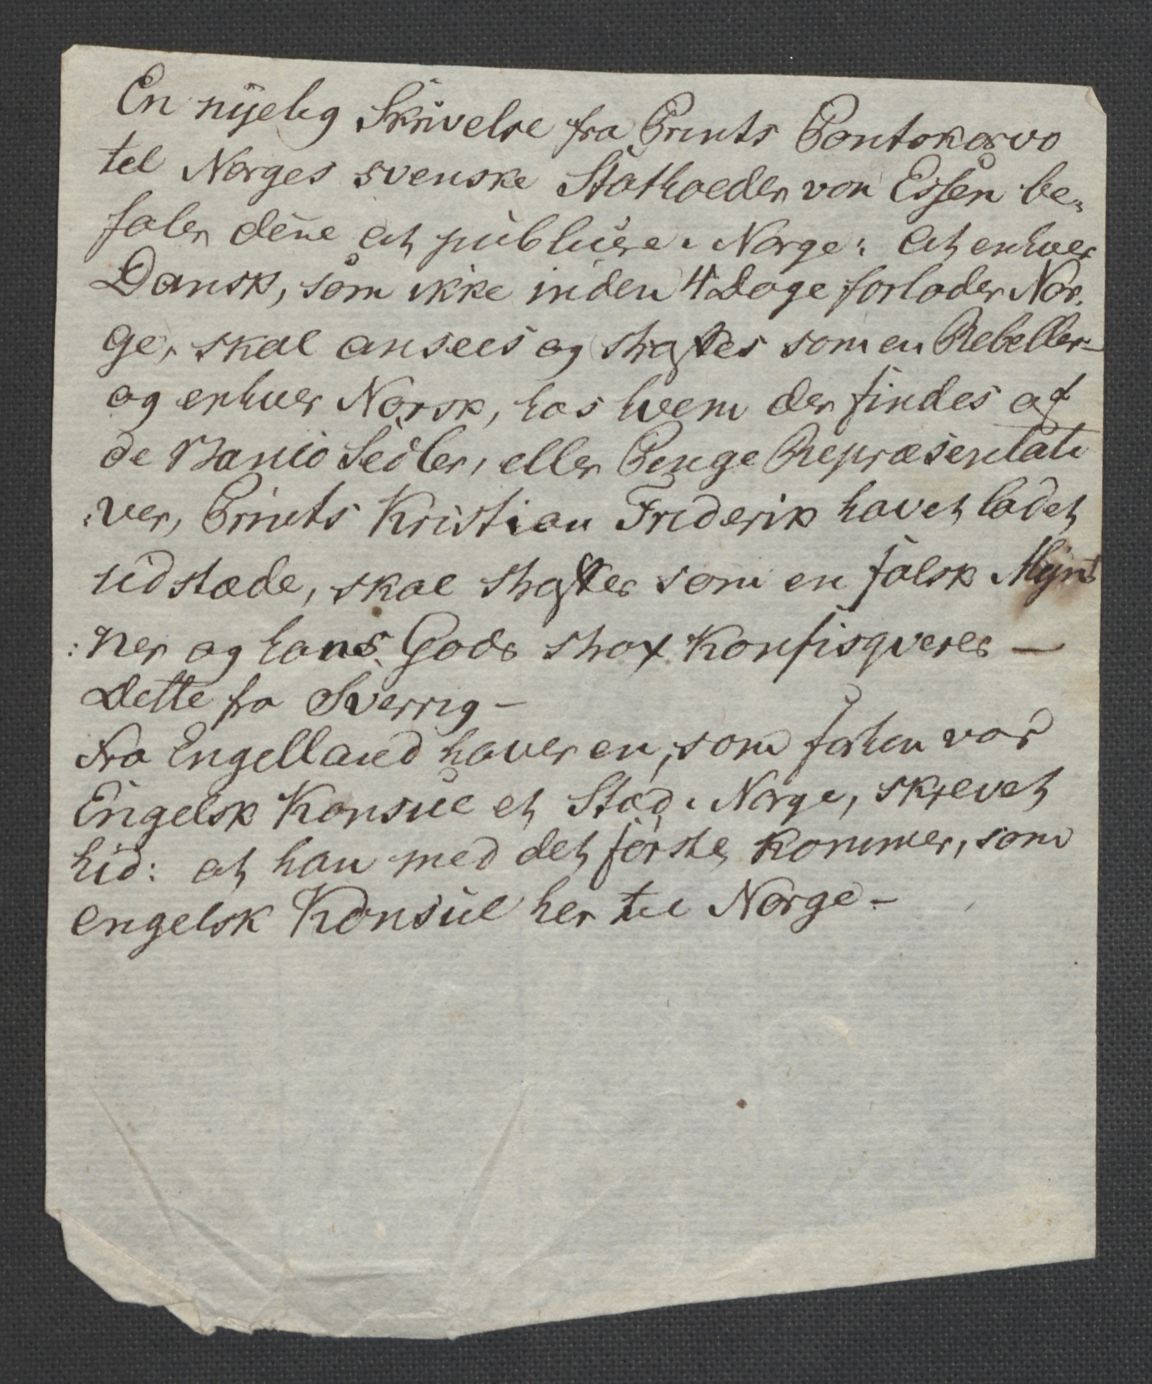 En nyelig Skrivelse fra Prints Pontokorvo
til Norges svenske Statholder von Essen be-
faler dene at publicere i Norge: at enhver
Dansk, som ikke inden 4 Dage forlader Nor-
ge, skal ansees og straffes som en Rebeller -
og enhver Norsk, hos hvem der findes af
de Banco Sedler, eller Penge Repræsentati
:ver, Prints Kristian Friderik havet ladet
udstæde, skal straffes som en falsk Mynt
:ner og hans Gods strax Konfisqveres —
Dette fra Sverrig -
Fra Engelland haver en, som forhen var
Engelsk Konsul et Stæd i Norge, skrevet
hid: at han med det første kommer, som
engelsk Konsul her til Norge -